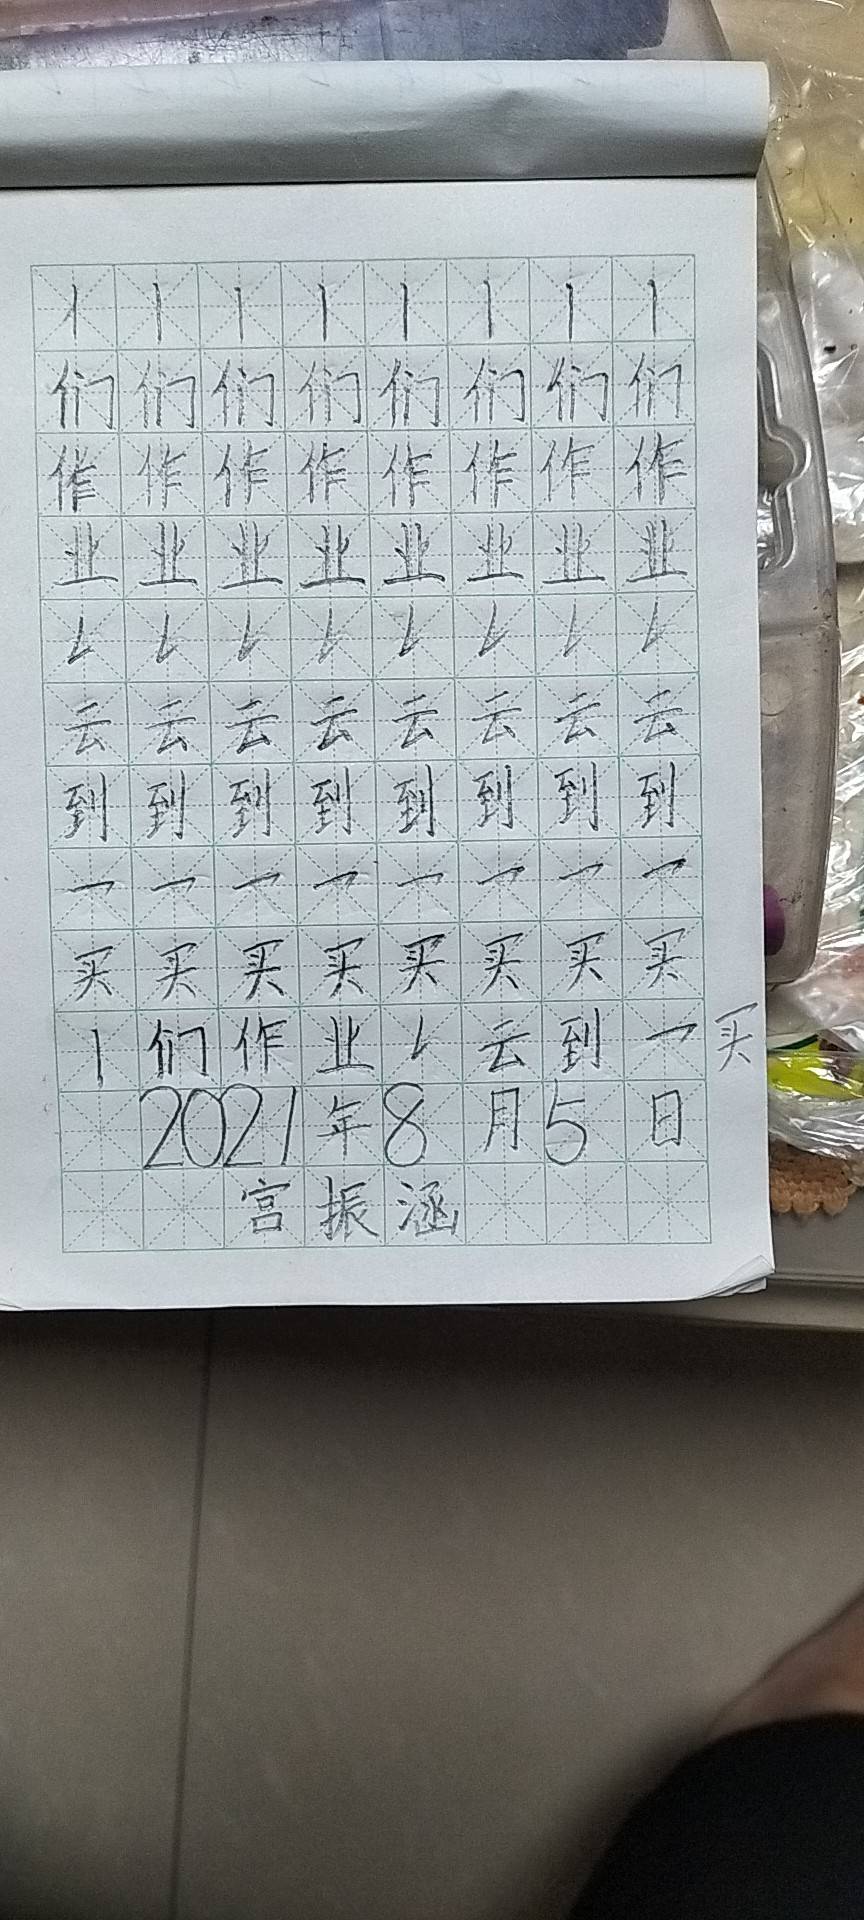 丨丨丨丨丨丨丨丨
们们们们们们们们
作作作作作作作作
业业业业业业业业
𠄌𠄌𠄌𠄌𠄌𠄌𠄌𠄌
云云云云云云云云
到到到到到到到到
乛乛乛乛乛乛乛乛
买买买买买买买买
丨们作业𠄌云到乛买
2021年8月5日
宫振涵